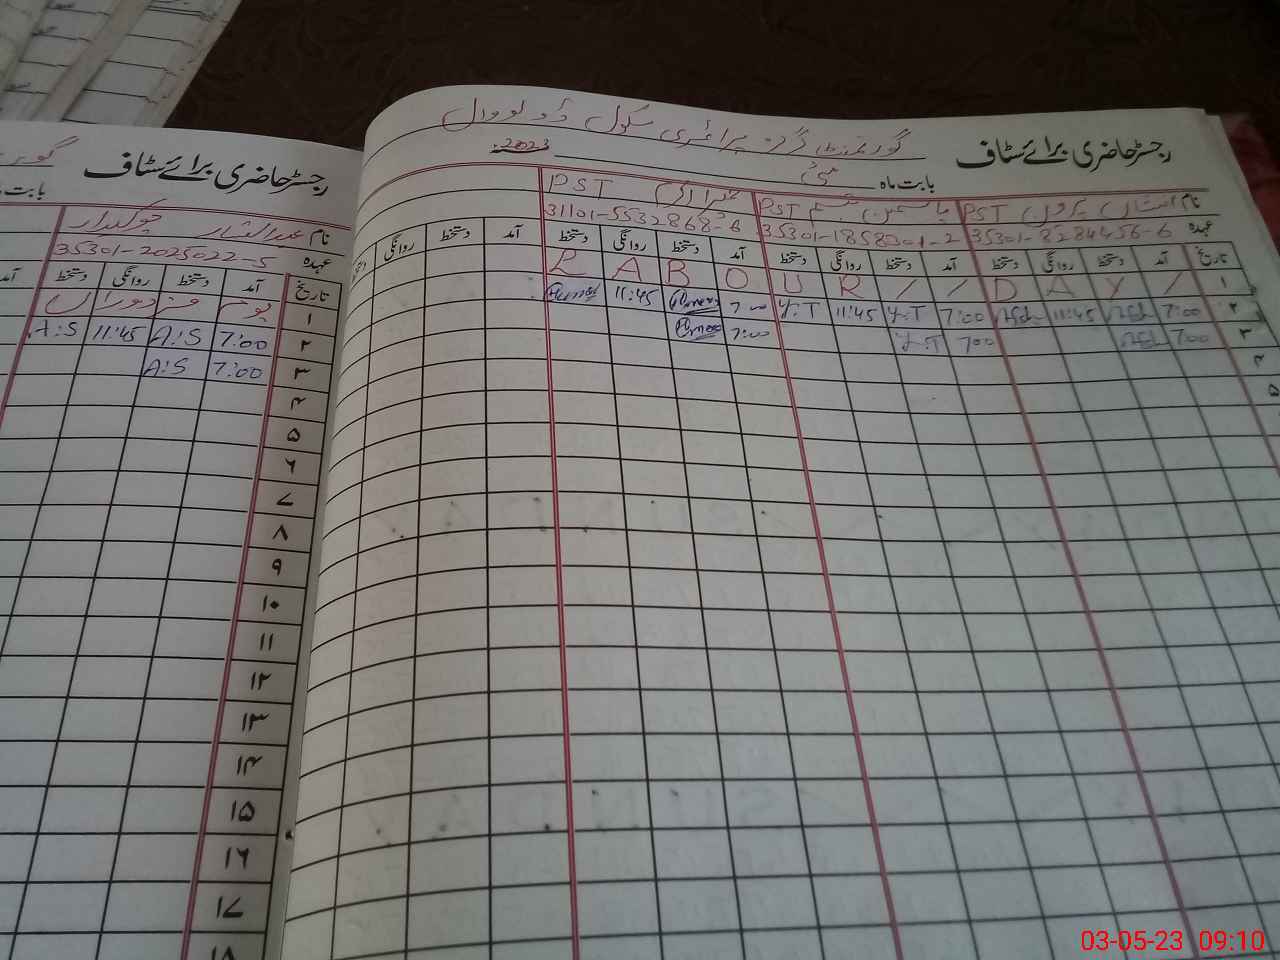 گورنمنٹ گرلز پرائمری سکول ڈولووال
رجسٹر حاضری برائے سٹاف
بابت ماہ مئی 2023
نام افشاں پروین PST یاسمین تبسم PST PST
عہدہ 35301-8284456-6 35301-1858201-2 31101-5532868-6
تاریخ آمد دستخط روانگی دستخط آمد دستخط روانگی دستخط آمد دستخط روانگی دستخط آمد دستخط روانگی
۱ L A B O U R / / D A Y /
۲ 7:00 11:45 7:00 Y.T 11:45 Y.T 7:00 11:45
۳ 700 700 Y.T 7:00
۴
۵
رجسٹر حاضری برائے سٹاف
بابت
نام عبدالستار چوکیدار
عہدہ 35301-2025022-5
تاریخ آمد دستخط روانگی دستخط آمد
۱ یوم مزدوراں
۲ 7:00 A:S 11:45 A:S
۳ 7:00 A:S
۴
۵
۶
۷
۸
۹
۱۰
۱۱
۱۲
۱۳
۱۴
۱۵
۱۶
۱۷
۱۸
03-05-23 09:10